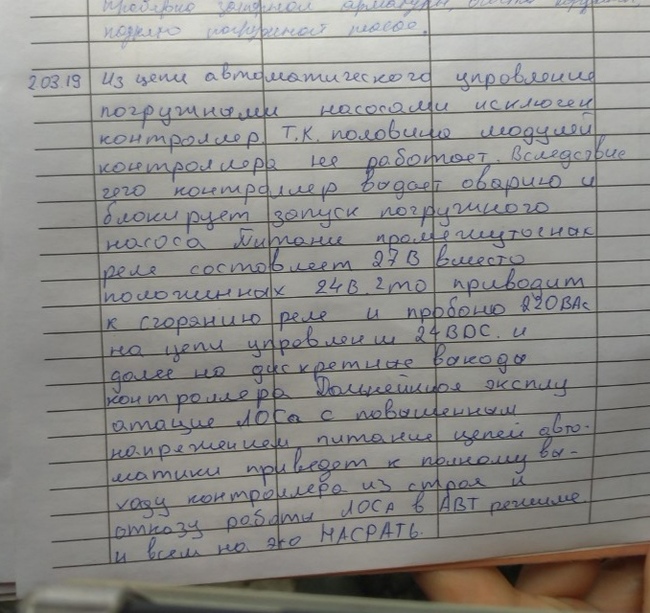 Проверка запорной арматуры
погружной насос.
2.03.19 Из цепи автоматического упровления
погружными насосами исключен
контроллер. Т.К. половина модулей
контроллера не работает. Вследствие
чего контроллер выдает оварию и
блокирует запуск погружного
насоса Питание промежуточных
реле состовляет 27В вместо
положенных 24В. Это приводит
к сгоранию реле и пробою 220ВАс
на цепи управления 24ВDC. и
далее на дискретные выходы
контроллера Дальнейшая эксплу
атацие ЛОСа с повышенным
напряжением питание цепей авто-
матики приведет к полному вы-
ходу контроллера из строя и
отказу работы ЛОСа в АВТ режиме
и всем на это НАСРАТЬ.